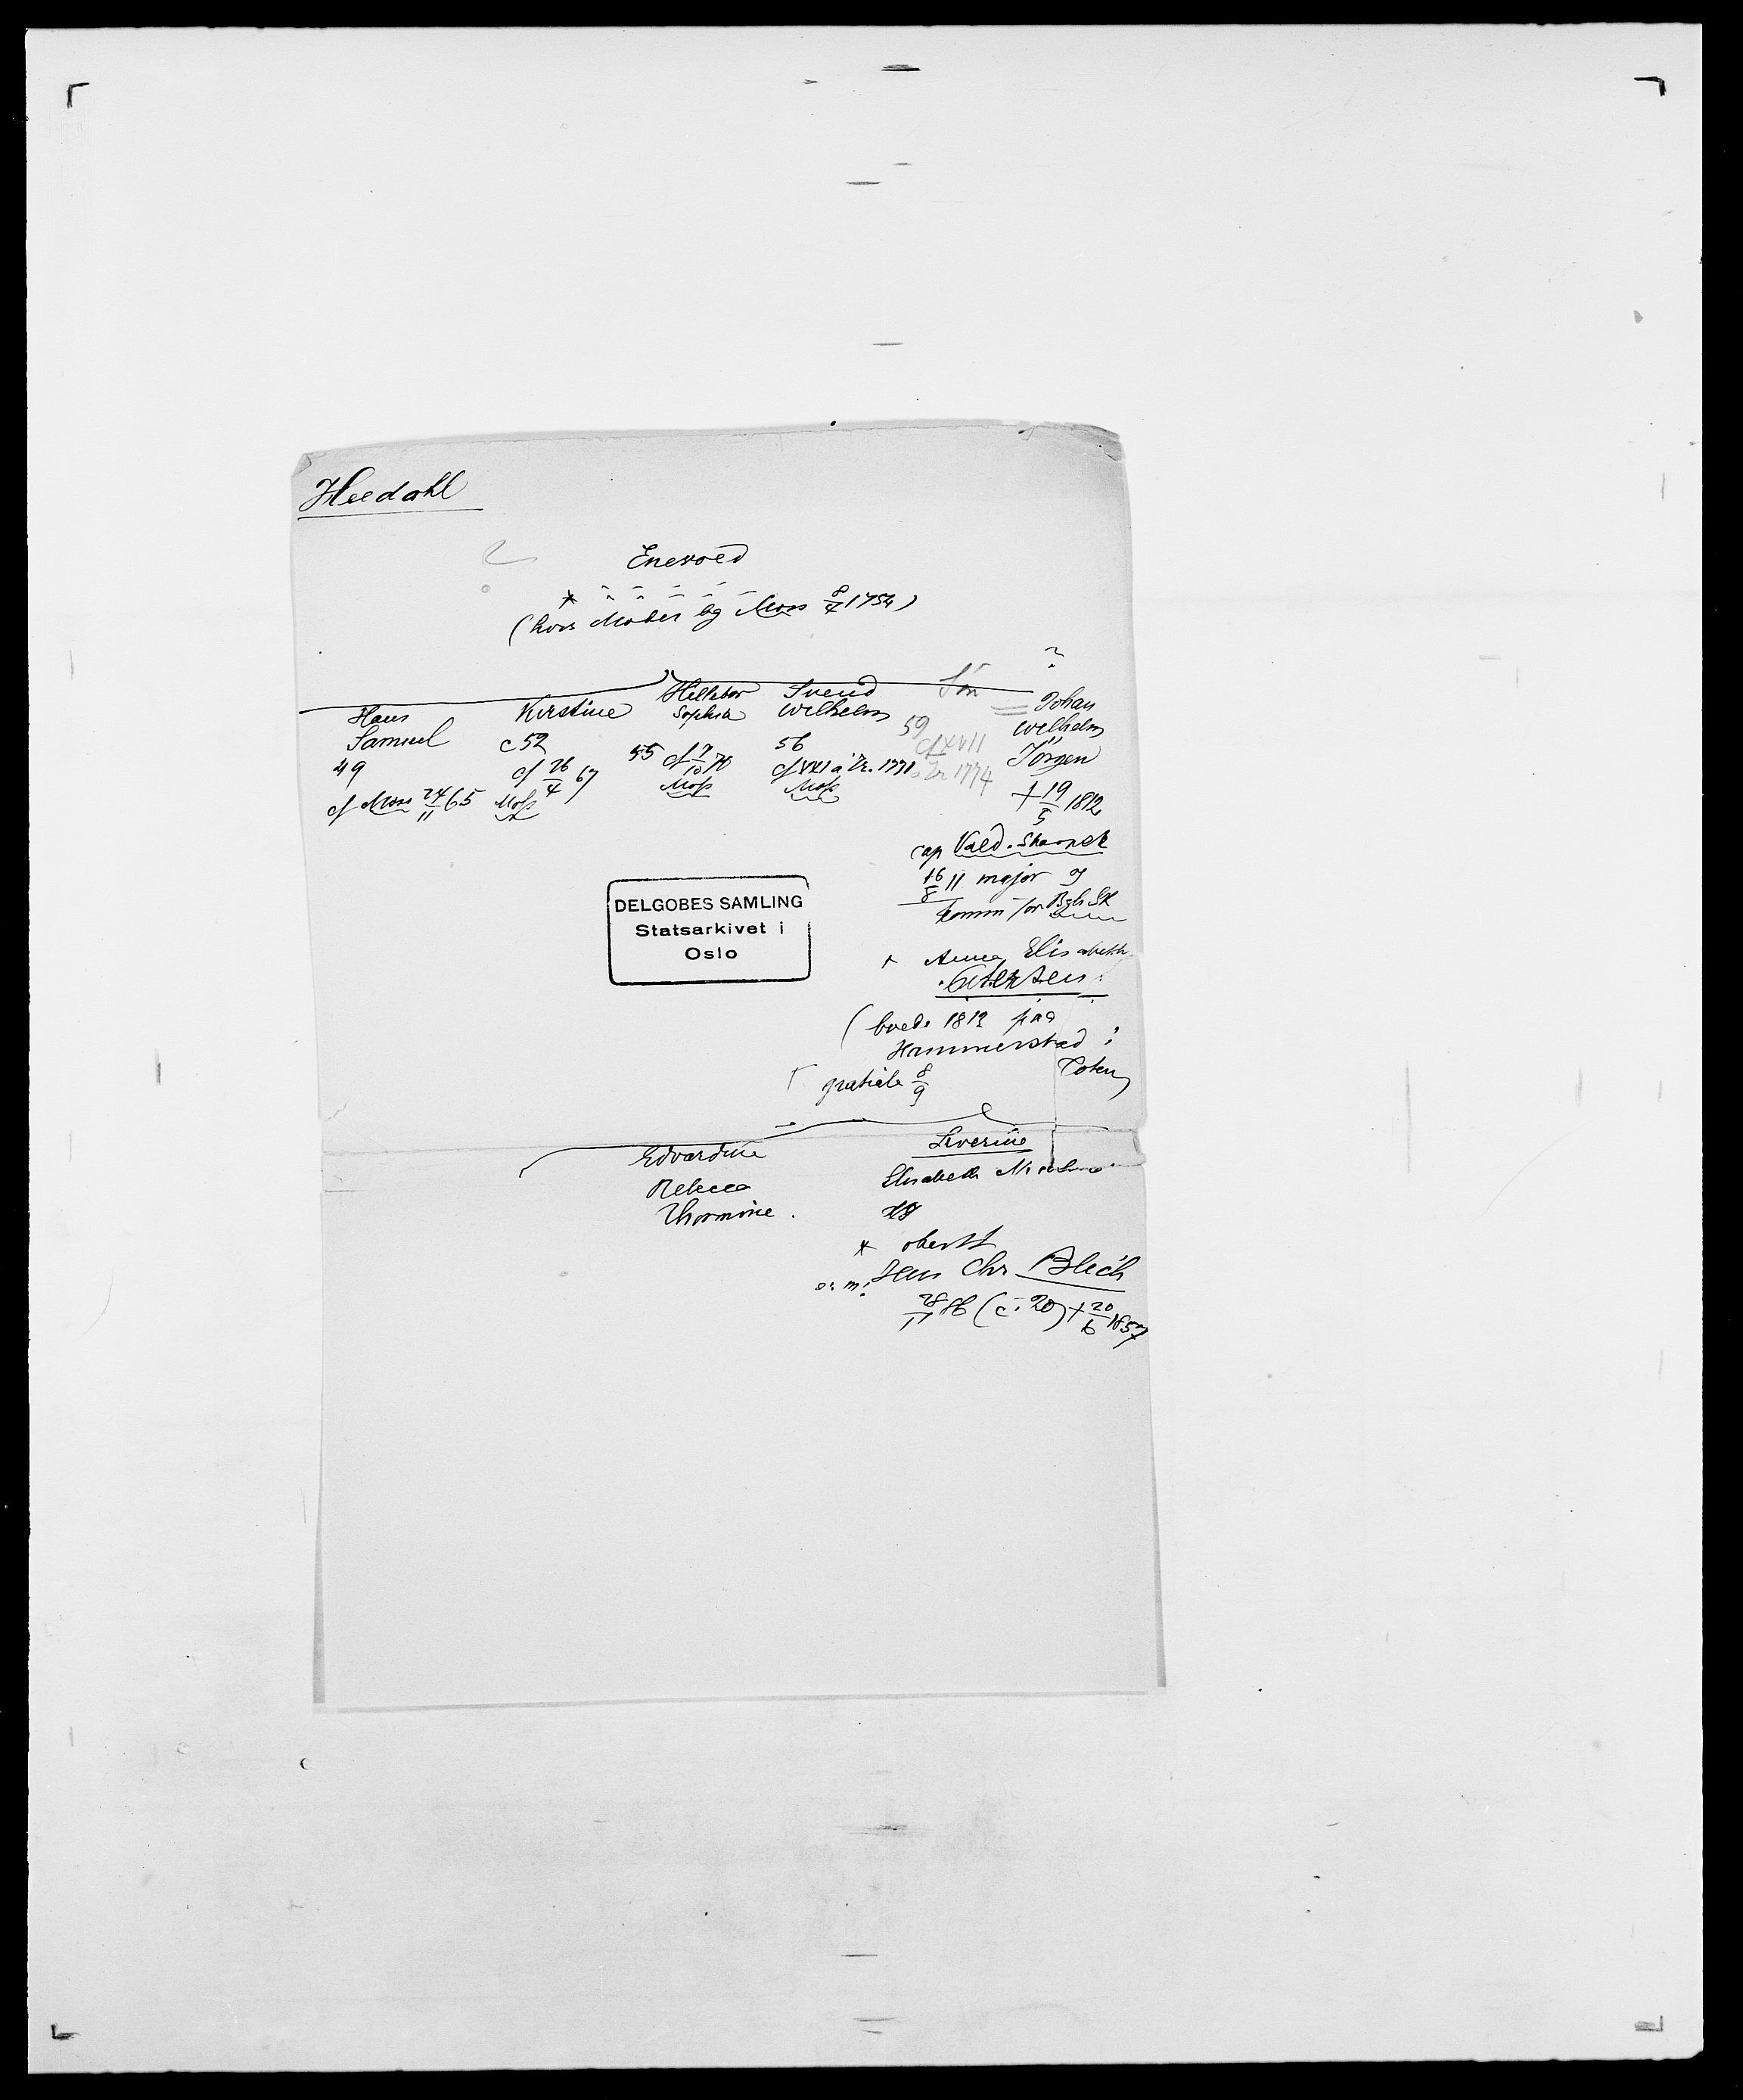 Heedahl
?
Enevold
* - - - - -
(hvis Moder bg Moss 8/4 1754)
Hans
Samuel
49
cf Moss 24/11 65
Kirstine
c 52
cf 26/4 67
Moss
Hellebor
Sophia
55 cf 7/10 70
Moss
Svend
Wilhelm
56
cf XXI a Tr. 1771
Moss
Søn
59
cf XVII
a Tr 1774
?
Johan
Wilhelm
Jörgen
† 19/5 1812
cap Vald. Skarpsk
16/8 11 major og
komm for Bgh Sk
* Anna Elisabeth
(boede 1812 paa
Hammerstad i
Toten)
8/9
Edvardine
Rebecca
Thomine.
Severine
Elisabeth
* oberstl
Jens Chr Blech
28/11 (c. 20) † 20/6 1857
DELGOBES SAMLING
Statsarkivet i
Oslo